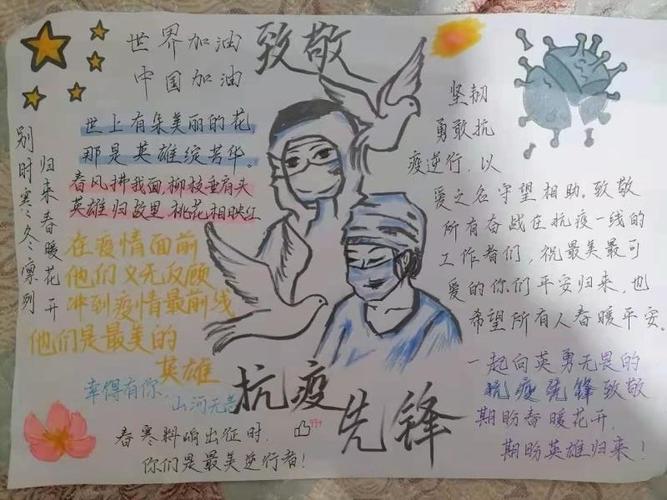 世界加油
中国加油
致敬
世上有朵美丽的花
那是英雄绽芳华。
春风拂我面,柳枝垂肩头
英雄归故里,桃花相映红
别时寒冬凛冽
归来春暖花开
在疫情面前
他们义无反顾
冲到疫情最前线
他们是最美的
英雄
幸得有你,
山河无恙
春寒料峭出征时,
你们是最美逆行者!
99+
抗疫
先锋
坚韧
勇敢抗
疫逆行,以
爱之名守望相助。致敬
所有奋战在抗疫一线的
工作者们,祝最美最可
爱的你们平安归来,也
希望所有人春暖平安
一起向英勇无畏的
抗疫先锋致敬
期盼春暖花开,
期盼英雄归来!